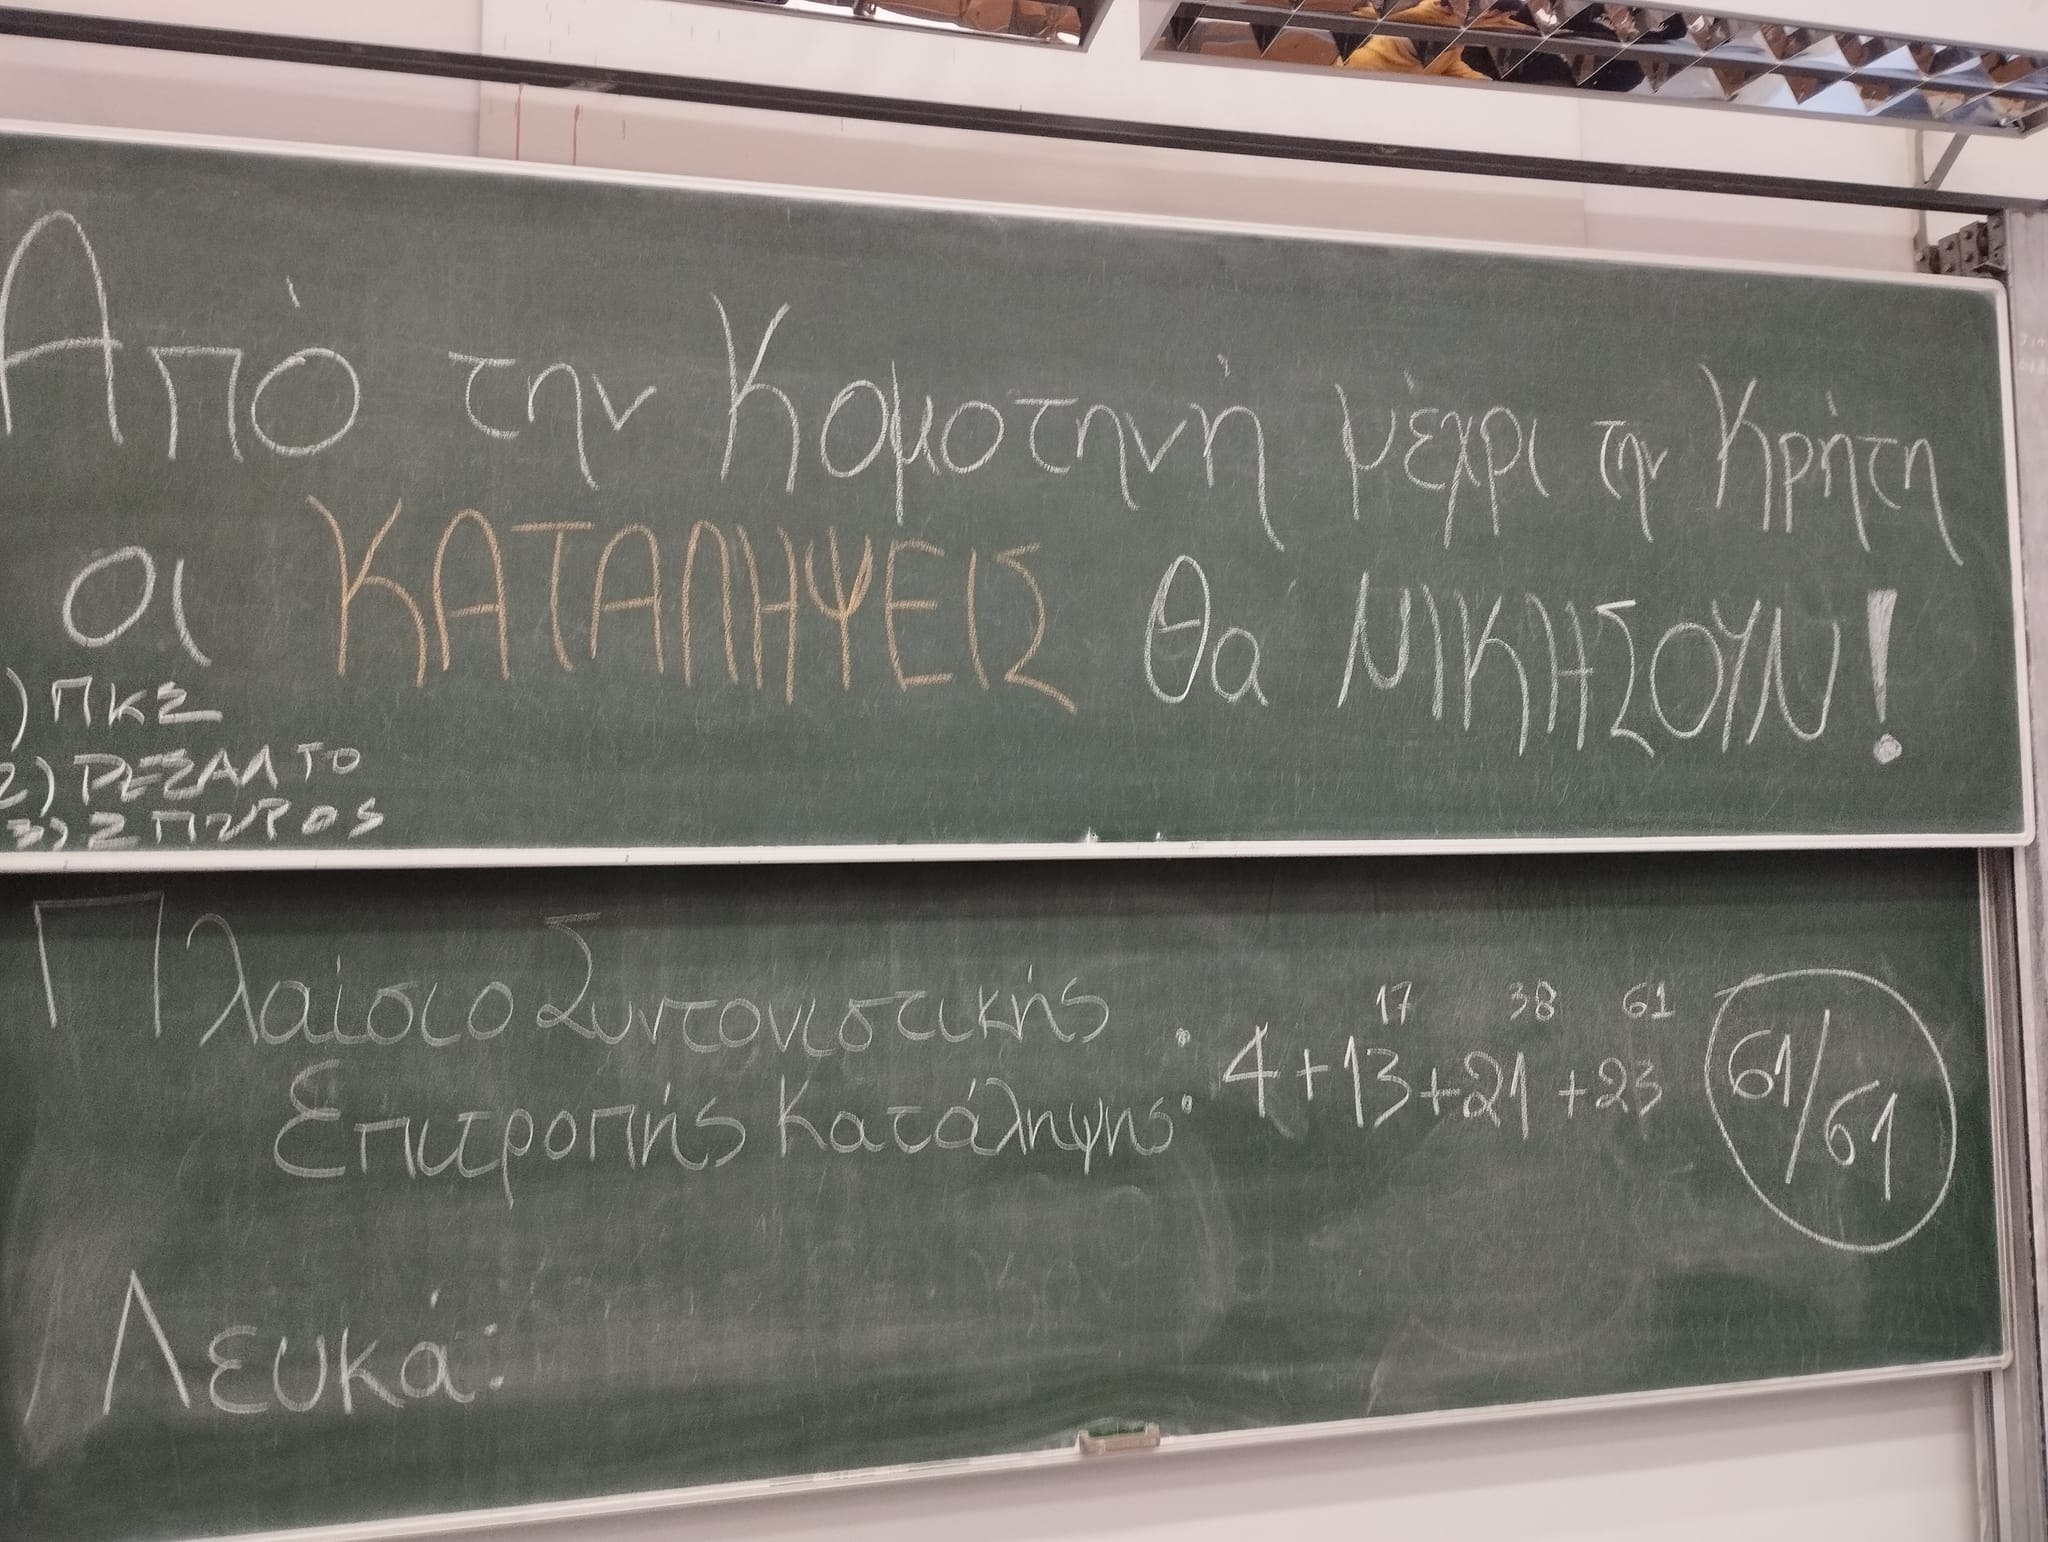 Από την Κομοτηνή μέχρι την Κρήτη
οι ΚΑΤΑΛΗΨΕΙΣ θα ΝΙΚΗΣΟΥΝ!
) ΠΚΣ
2) ΡΕΣΑΛΤΟ
3) ΣΠΥΡΟS
Πλαίσιο Συντονιστικής
Επιτροπής Κατάληψης:
17 38 61
4+13+21+23 61/61
Λευκά: